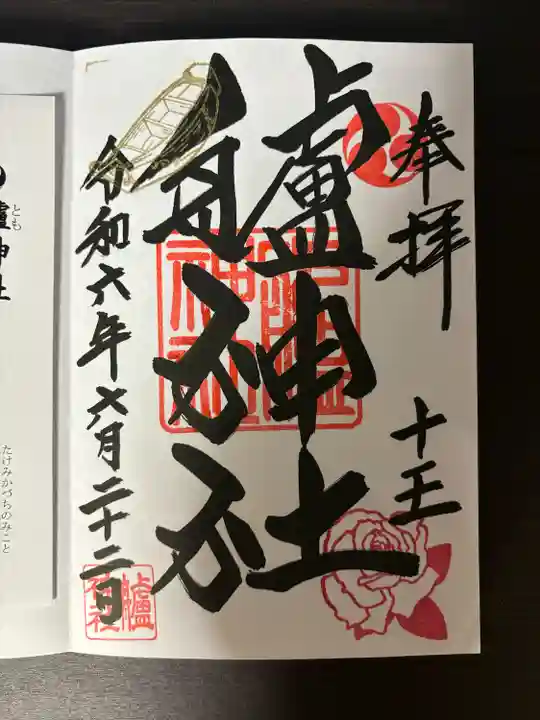 奉拝
十王
艫神社
令和六年六月二十二日
艫神社
艫神社
艫神社
とも
たけみかづちのみこと